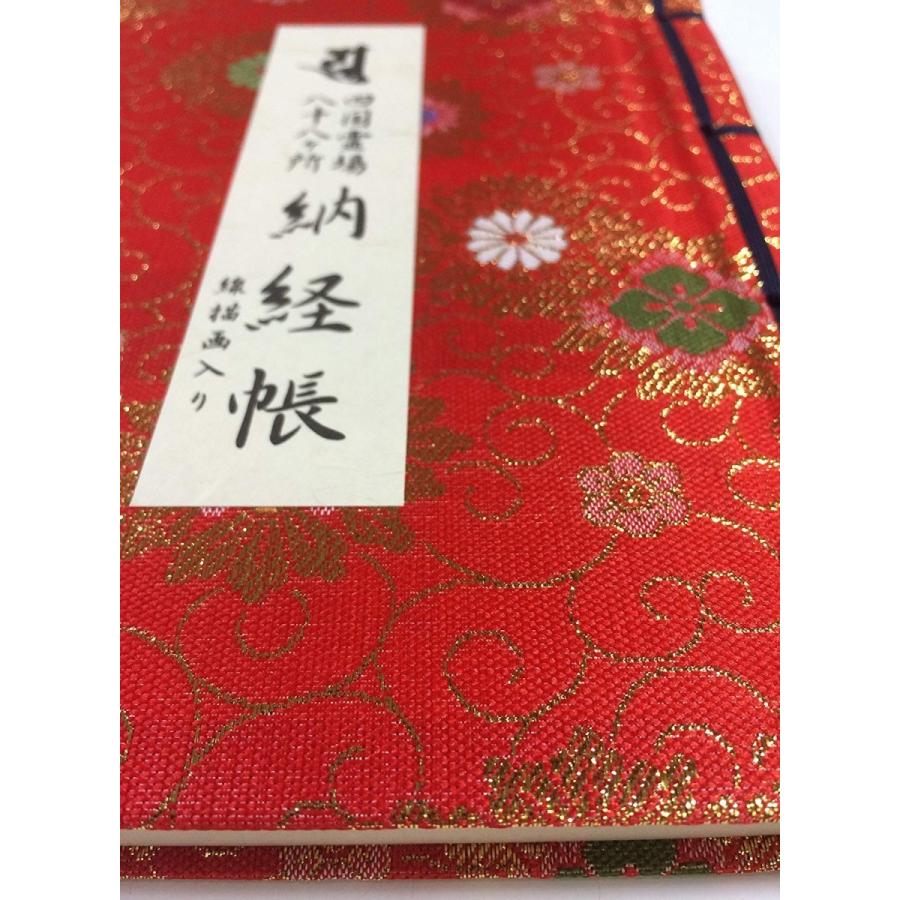 四国霊場
八十八ヶ所
納経帳
線描画入り